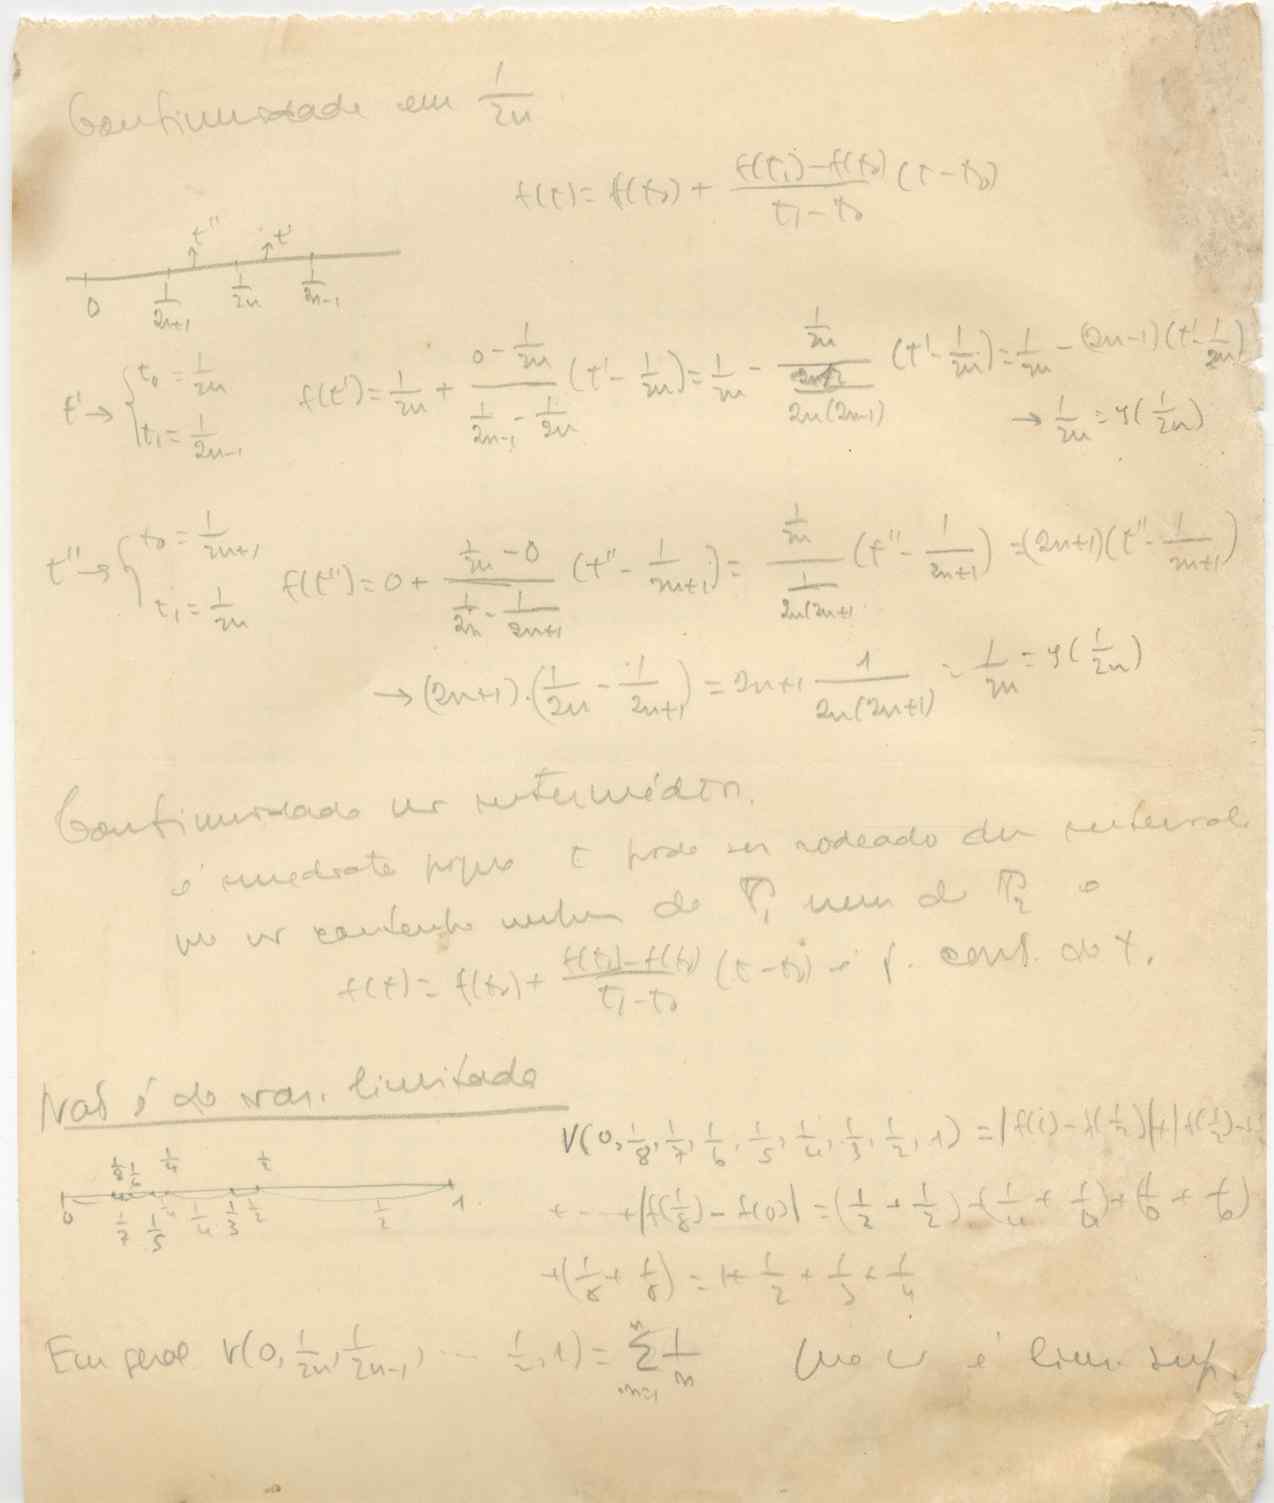 Continuidade em 1/2n
f(t) = f(t₀) + (f(t₁) - f(t₀))/(t₁ - t₀) (t - t₀)
t'' t'
0 1/2n+1 1/2n 1/2n-1
t' → { t₀ = 1/2n t₁ = 1/2n-1 f(t') = 1/2n + (0 - 1/2n)/(1/2n-1 - 1/2n) (t' - 1/2n) = 1/2n - (1/2n)/(1/2n(2n-1)) (t' - 1/2n) = 1/2n - (2n-1)(t' - 1/2n)
→ 1/2n = φ(1/2n)
t'' → { t₀ = 1/2n+1 t₁ = 1/2n f(t'') = 0 + (1/2n - 0)/(1/2n - 1/2n+1) (t'' - 1/2n+1) = (1/2n)/(1/2n(2n+1)) (t'' - 1/2n+1) = (2n+1)(t'' - 1/2n+1)
→ (2n+1).(1/2n - 1/2n+1) = 2n+1 1/2n(2n+1) = 1/2n = φ(1/2n)
Continuidade intermédios.
é imediata porque t pode ser rodeado dum interval.
que contenha de P₁ nem de P₂ e
f(t) = f(t₀) + (f(t₁) - f(t₀))/(t₁ - t₀) (t - t₀) é f. cont. de t.
Não é de var. limitada
V(0, 1/8, 1/7, 1/6, 1/5, 1/4, 1/3, 1/2, 1) = |f(1) - f(1/2)| + |f(1/2) -
1/8 1/6 1/4 1/2
0 1/7 1/5 1/4 1/4 1/3 1/2 1/2 1
+ ... + |f(1/8) - f(0)| = (1/2 + 1/2) + (1/4 + 1/4) + (1/6 + 1/6)
+ (1/8 + 1/8) = 1 + 1/2 + 1/3 + 1/4
Em geral V(0, 1/2n, 1/2n-1, ... 1/2, 1) = Σ 1/n que é lim. sup.